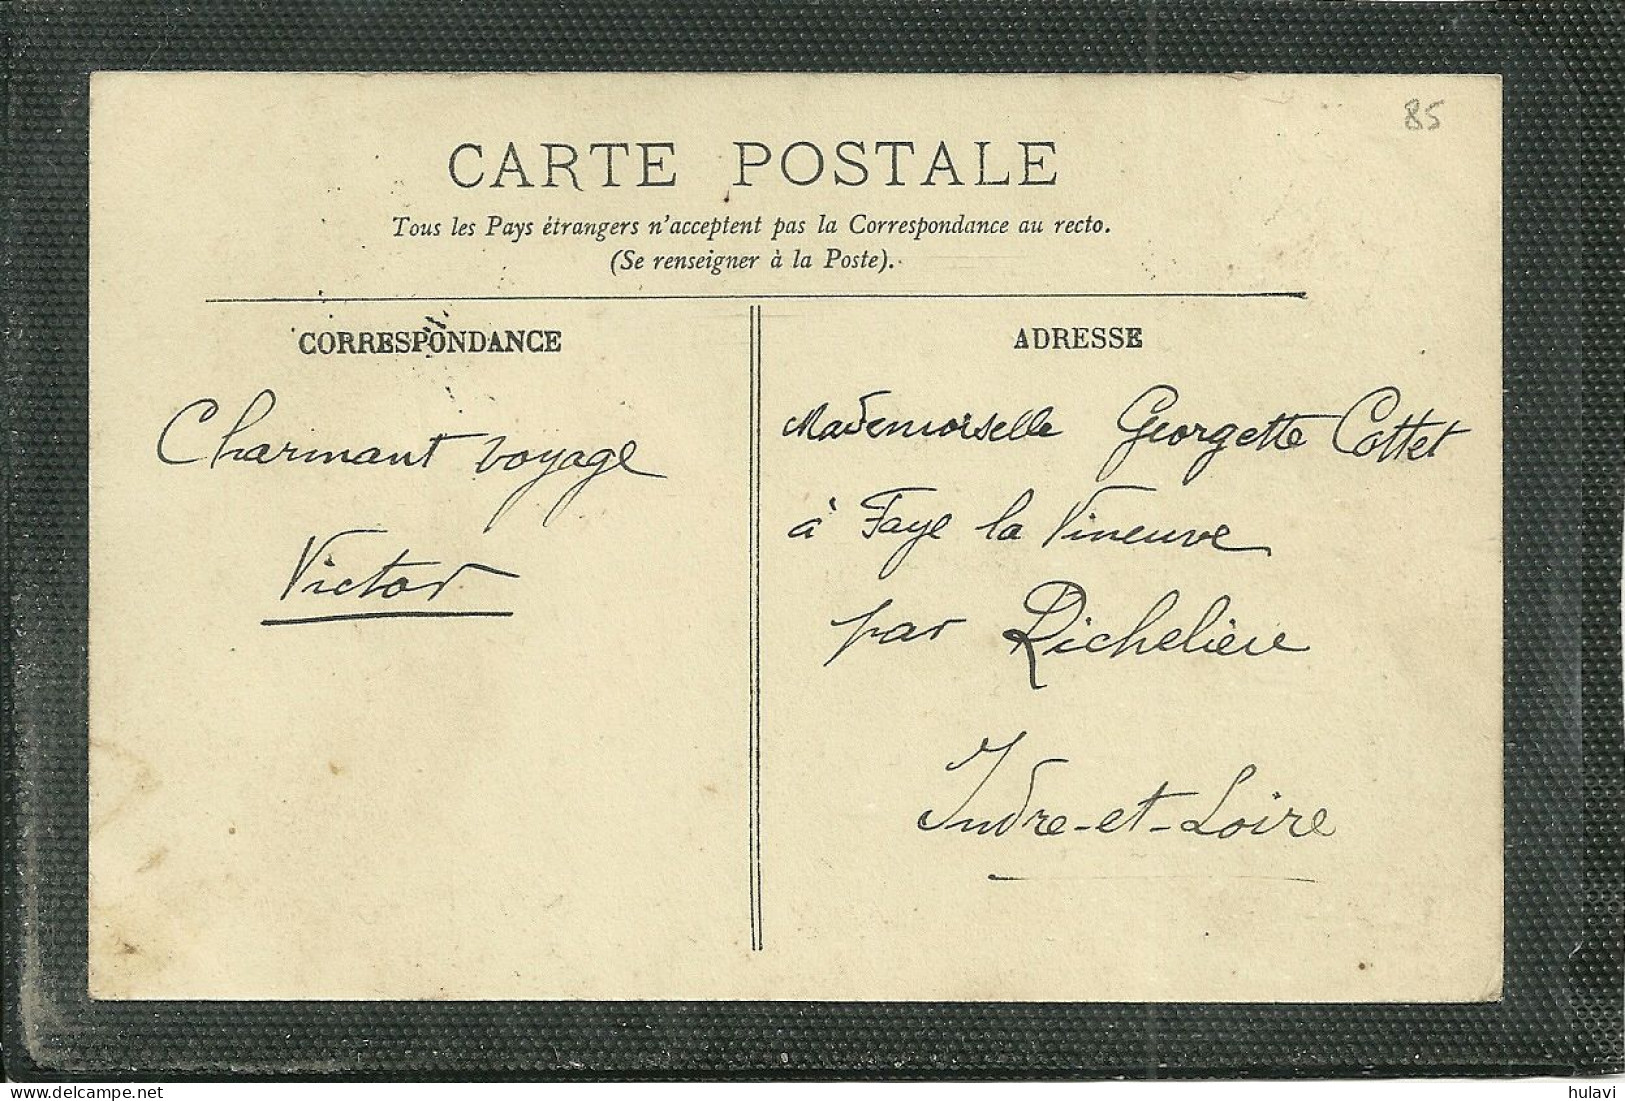 85
CARTE POSTALE
Tous les Pays étrangers n'acceptent pas la Correspondance au recto.
(Se renseigner à la Poste).
CORRESPONDANCE
Charmant voyage
Victor
ADRESSE
Mademoiselle Georgette Cottet
à Faye la Vineuve
par Richelieu
Indre-et-Loire
hulavi